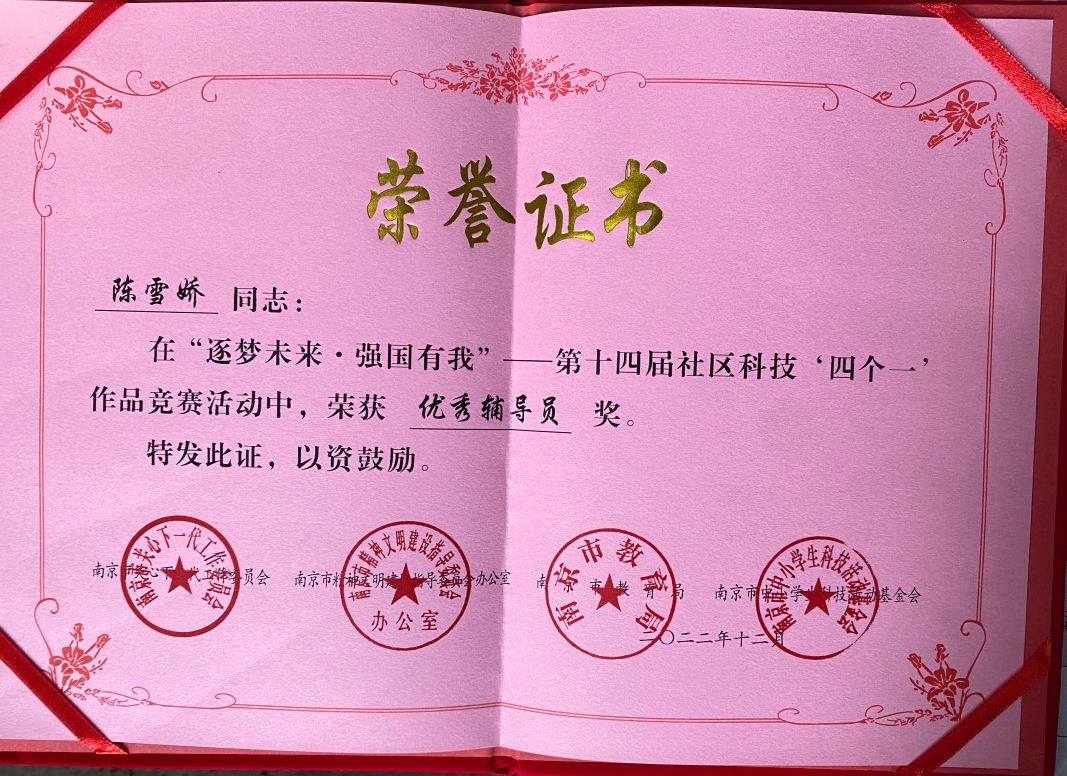 荣誉证书
陈雪娇 同志：
在“逐梦未来·强国有我”——第十四届社区科技‘四个一’
作品竞赛活动中，荣获 优秀辅导员 奖。
特发此证，以资鼓励。
南京市关心下一代工作委员会 南京市精神文明建设指导委员会办公室 南京市教育局 南京市中小学生科技活动基金会
二〇二二年十二月
南京市关心下一代工作委员会
南京市精神文明建设指导委员会
办公室
南京市教育局
南京市中小学生科技活动基金会